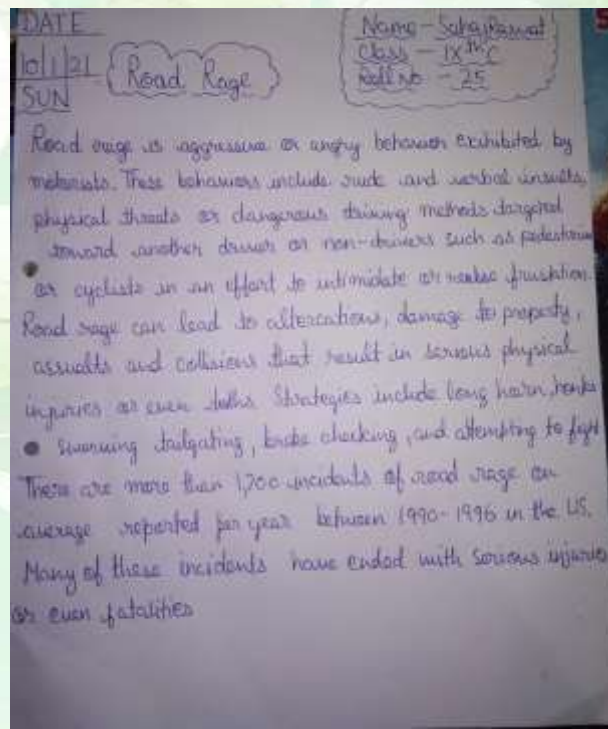 DATE
10/1/21
SUN
Road Rage
Name - Sahaj Rawat
Class - IXth C
Roll No - 25
Road rage is aggressive or angry behavior exhibited by
motorists. These behaviors include rude and verbal insults,
physical threats or dangerous driving methods targeted
toward another driver or non-drivers such as pedestrians
or cyclists in an effort to intimidate or release frustation.
Road rage can lead to altercations, damage to property,
assualts and collisions that result in serious physical
injuries or even deths. Strategies include long horn, honks
swerving tailgating, brake checking, and attempting to fight
There are more than 1,200 incidents of road rage on
average reported per year between 1990-1996 in the US.
Many of these incidents have ended with serious injuries
or even fatalities